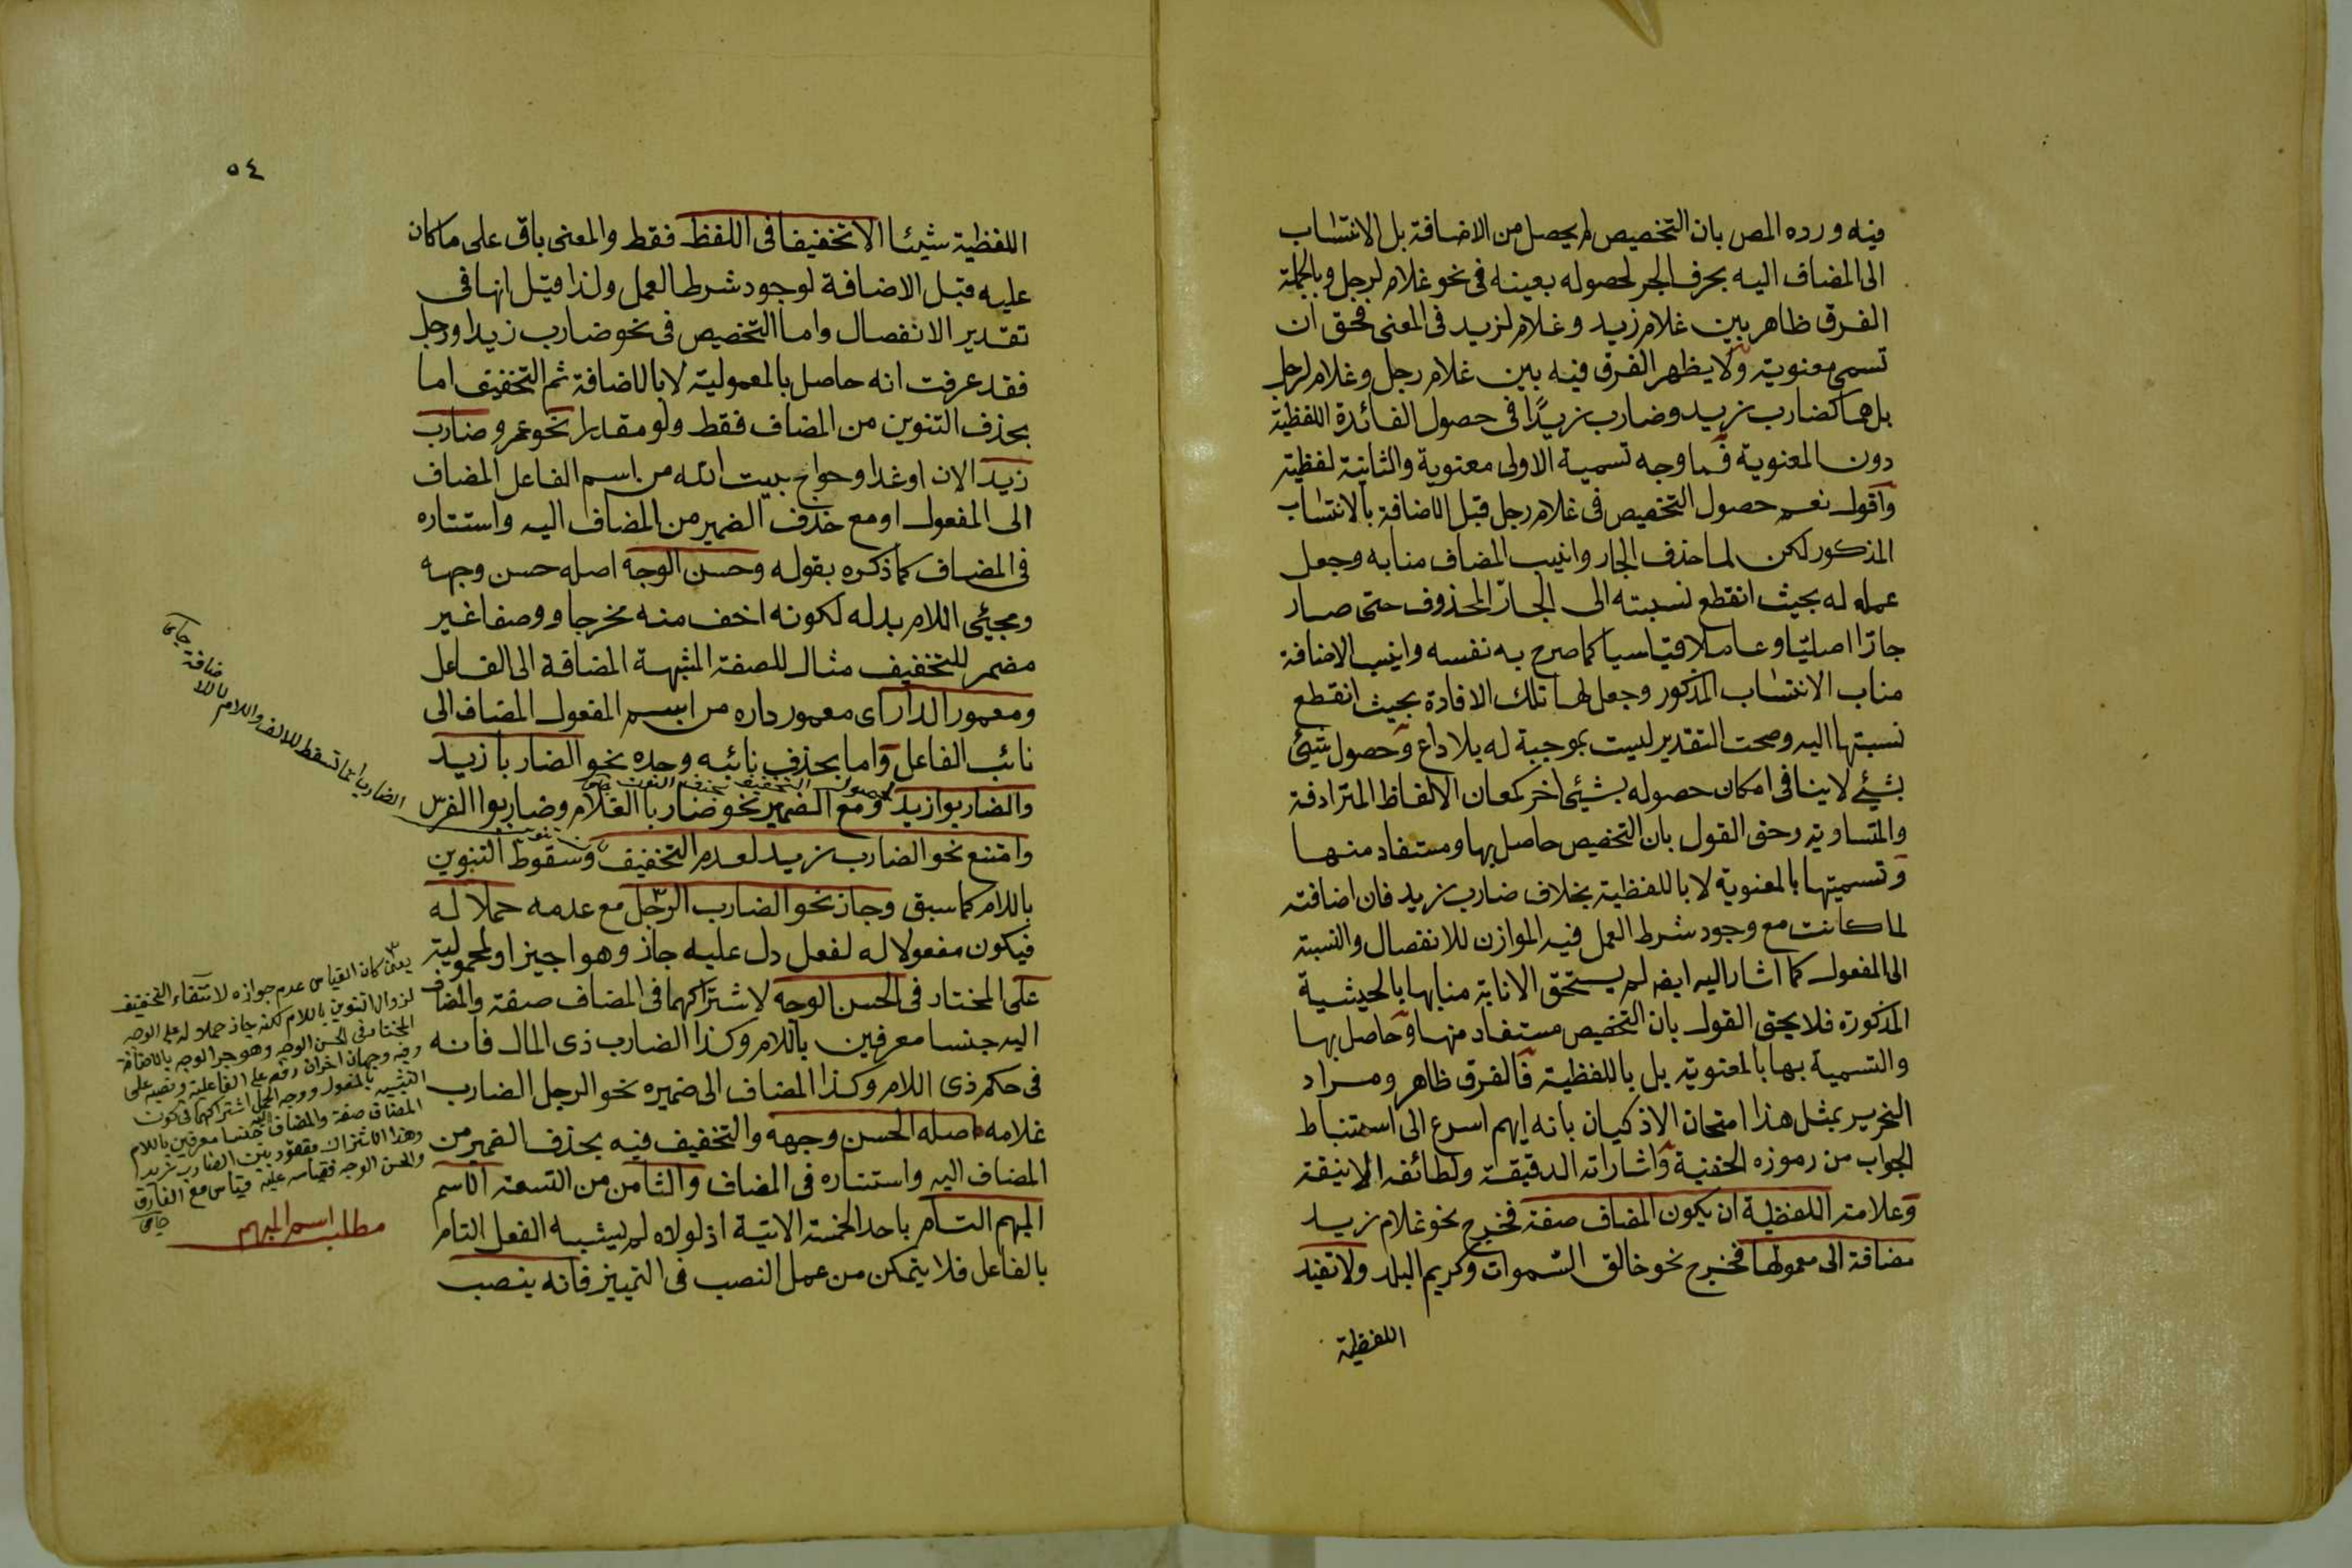 فيه ورده المص بان التخصيص لم يحصل من الاضافة بل الانتساب
الى المضاف اليه بحرف الجر لحصوله بعينه فى نحو غلام لرجل وبالجملة
الفرق ظاهر بين غلام زيد وغلام لزيد فى المعنى فحق ان
تسمى معنوية ولا يظهر الفرق فيه بين غلام رجل وغلام لرجل
بل هما كضارب زيد وضارب زيدًا فى حصول الفائدة اللفظية
دون المعنوية فما وجه تسمية الاولى معنوية والثانية لفظية
واقول نعم حصول التخصيص فى غلام رجل قبل الاضافة بالانتساب
المذكور لكن لما حذف الجار وانيب المضاف منابه وجعل
عمله له بحيث انقطع نسبته الى الجارّ المحذوف حتى صار
جارّا اصليّا وعاملا قياسيا كما صرح به نفسه وانيب الاضافة
مناب الانتساب المذكور وجعل لها تلك الافادة بحيث انقطع
نسبتها اليه وصحت التقدير ليست بموجبة له بلا داع وحصول شئ
بشئ لا ينافى امكان حصوله بشئ اخر كمعان الالفاظ المترادفة
والمتساوية وحق القول بان التخصيص حاصل بها ومستفاد منها
وتسميتها بالمعنوية لا باللفظية بخلاف ضارب زيد فان اضافته
لما كانت مع وجود شرط العمل فيه الموازن للانفصال والنسبة
الى المفعول كما اشار اليه ايضا لم يستحق الانابة منابها بالحيثية
المذكورة فلا يحق القول بان التخصيص مستفاد منها وحاصل بها
والتسمية بها بالمعنوية بل باللفظية فالفرق ظاهر ومراد
النحرير بمثل هذا امتحان الاذكيان بانه ايهم اسرع الى استنباط
الجواب من رموزه الخفية واشاراته الدقيقة ولطائفه الانيقة
وعلامة اللفظية ان يكون المضاف صفة فخرج نحو غلام زيد
مضافة الى معمولها فخرج نحو خالق السموات وكريم البلد ولا تفيد
اللفظية
٥٤
اللفظية شيئا الا تخفيفا فى اللفظ فقط والمعنى باق على ما كان
عليه قبل الاضافة لوجود شرط العمل ولذا قيل انها فى
تقدير الانفصال واما التخصيص فى نحو ضارب زيد او رجل
فقد عرفت انه حاصل بالمعمولية لا بالاضافة ثم التخفيف اما
بحذف التنوين من المضاف فقط ولو مقدرا نحو عمرو ضارب
زيد الان او غدا وحواج بيت الله من اسم الفاعل المضاف
الى المفعول او مع حذف الضمير من المضاف اليه واستتاره
فى المضاف كما ذكره بقوله وحسن الوجه اصله حسن وجهه
ومجيئ اللام بدله لكونه اخف منه مخرجا ووصفا غير
مضمر للتخفيف مثال للصفة المشبهة المضافة الى الفاعل
ومعمور الدار اى معمور داره من اسم المفعول المضاف الى
نائب الفاعل واما بحذف نائبه وحده نحو الضاربا زيد
والضاربوا زيد ومع الضمير نحو ضاربا الغلام وضاربوا الفرس
لحصول التخفيف بحذف النون جامى
وامتنع نحو الضارب زيد لعدم التخفيف وسقوط التنوين
باللام كما سبق وجاز نحو الضارب الرجل مع عدمه حملا له
فيكون مفعولا له لفعل دل عليه جاز وهو اجيز او لمحمولية
على المختار فى الحسن الوجه لاشتراكهما فى المضاف صفة والمضاف
اليه جنسا معرفين باللام وكذا الضارب ذى المال فانه
فى حكم ذى اللام وكذا المضاف الى ضميره نحو الرجل الضارب
غلامه اصله الحسن وجهه والتخفيف فيه بحذف الضمير من
المضاف اليه واستتاره فى المضاف والثامن من التسعة الاسم
المبهم التام باحد الخمسة الاتية اذ لولاه لم يشبه الفعل التام
بالفاعل فلا يتمكن من عمل النصب فى التمييز فانه ينصب
الضارب انما تسقط للالف واللام لا للاضافة جامى
يعنى كان القياس عدم جوازه لانتفاء التخفيف
لزوال التنوين باللام لكنه جاز حملا له على الوجه
المختار فى الحسن الوجه وهو جر الوجه بالاضافة
وفيه وجهان اخران رفعه على الفاعلية ونصبه على
التشبيه بالمفعول ووجه الحمل اشتراكهما فى كون
المضاف صفة والمضاف اليه جنسا معرفين باللام
وهذا الاشتراك مفقود بين الضارب زيد
والحسن الوجه فقياسه عليه قياس مع الفارق
جامى
مطلب اسم المبهم